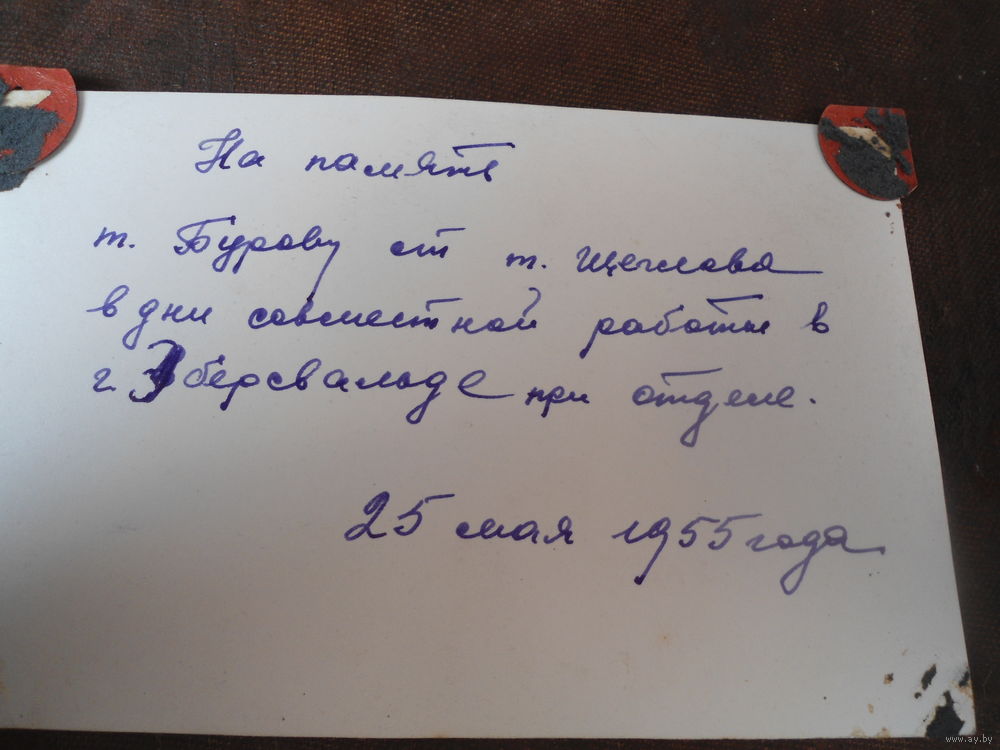 На память
т. Бурову от т. Щеглова
в дни совместной работы в
г. Эберсвальде при отделе.
25 мая 1955 года
www.ay.by